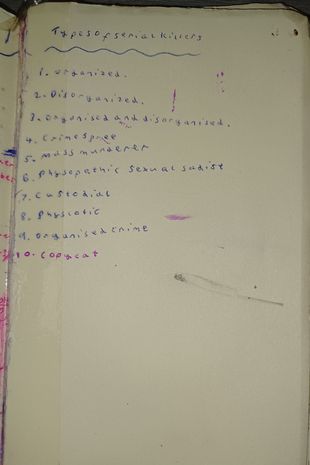 Types of serial killers
1. organized.
2. Disorganized.
3. Organised and disorganised.
4. Crime Spree
5. mass murderer
6. Physepathic Sexual sadist
7. Custodial
8. Physiotic
9. Organised crime
10. Copycat